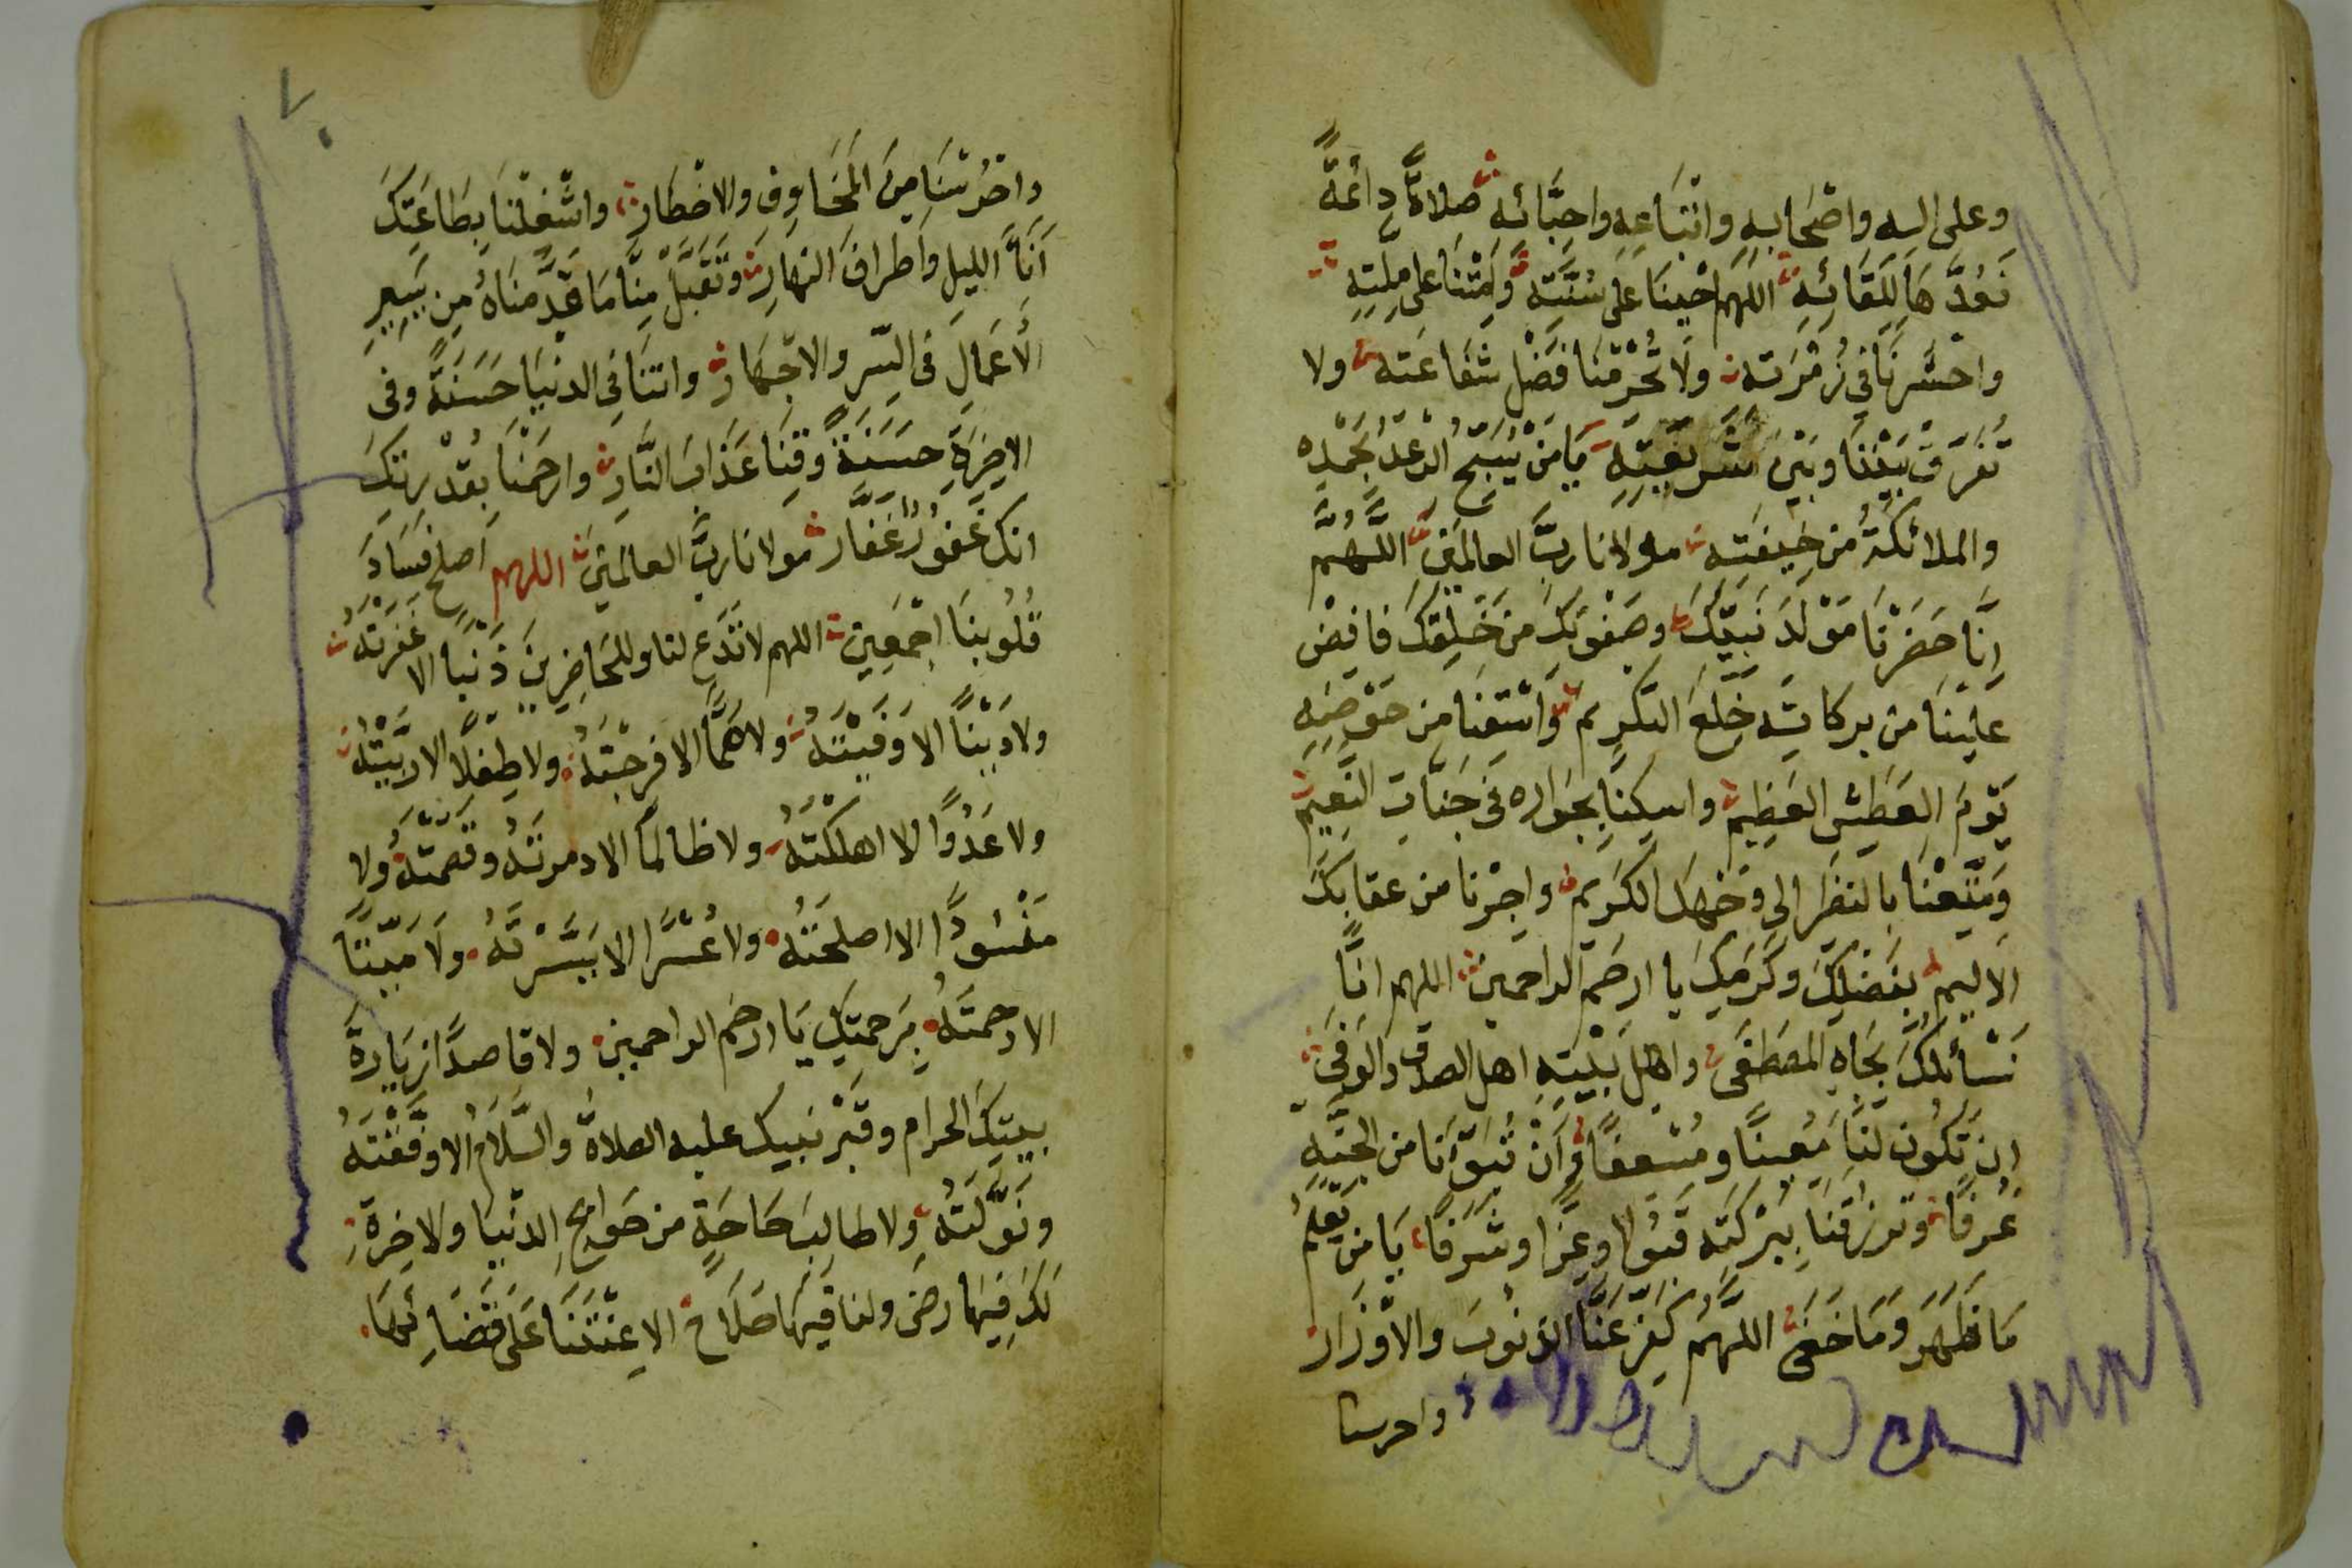 وعلى اله واصحابه واتباعه واحبائه صلاة دائمة
نعدها للقائه اللهم احينا على سنته وامتنا على ملته
واحشرنا في زمرته ولا تحرمنا فضل شفاعته ولا
تفرق بيننا وبين شريعته يا من يسبح الرعد بحمده
والملائكة من خيفته مولانا رب العالمين اللهم
انا حضرنا مولد نبيك وصفوتك من خلقك فافض
علينا من بركاته خلع التكريم واسقنا من حوضه
يوم العطش العظيم واسكنا بجواره في جنات النعيم
ومتعنا بالنظر الى وجهك الكريم واجرنا من عقابك
الاليم بفضلك وكرمك يا ارحم الراحمين اللهم انا
نسألك بجاه المصطفى واهل بيته اهل الصدق والوفى
ان تكون لنا معينا ومسعفا وان تبوئنا من الجنة
غرفا وترزقنا ببركته قبولا وعزا وشرفا يا من يعلم
ما ظهر وما خفى اللهم كفر عنا الذنوب والاوزار
واحرسنا
٧٠
واحرسنا من المخاوف والاخطار واشغلنا بطاعتك
اناء الليل واطراف النهار وتقبل منا ما قدمناه من يسير
الاعمال في السر والاجهار واتنا في الدنيا حسنة وفى
الاخرة حسنة وقنا عذاب النار وارحمنا بقدرتك
انك غفور غفار مولانا رب العالمين اللهم اصلح فساد
قلوبنا اجمعين اللهم لا تدع لنا وللحاضرين ذنبا الا غفرته
ولا دينا الا وفيته ولا هما الا فرجته ولا طفلا الا ربيته
ولا عدوا الا اهلكته ولا ظالما الا دمرته وقصمته ولا
مفسودا الا اصلحته ولا عسرا الا يسرته ولا ميتا
الا رحمته برحمتك يا ارحم الراحمين ولا قاصدا زيارة
بيتك الحرام وقبر نبيك عليه الصلاة والسلام الا وفقته
ونولته ولا طالب حاجة من حوايج الدنيا والاخرة
لك فيها رضى ولنا فيها صلاح الا عنتنا على قضائها